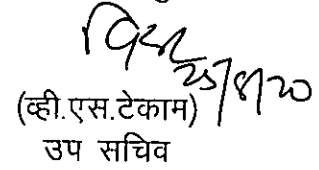 25/8/20
(व्ही.एस.टेकाम)
उप सचिव